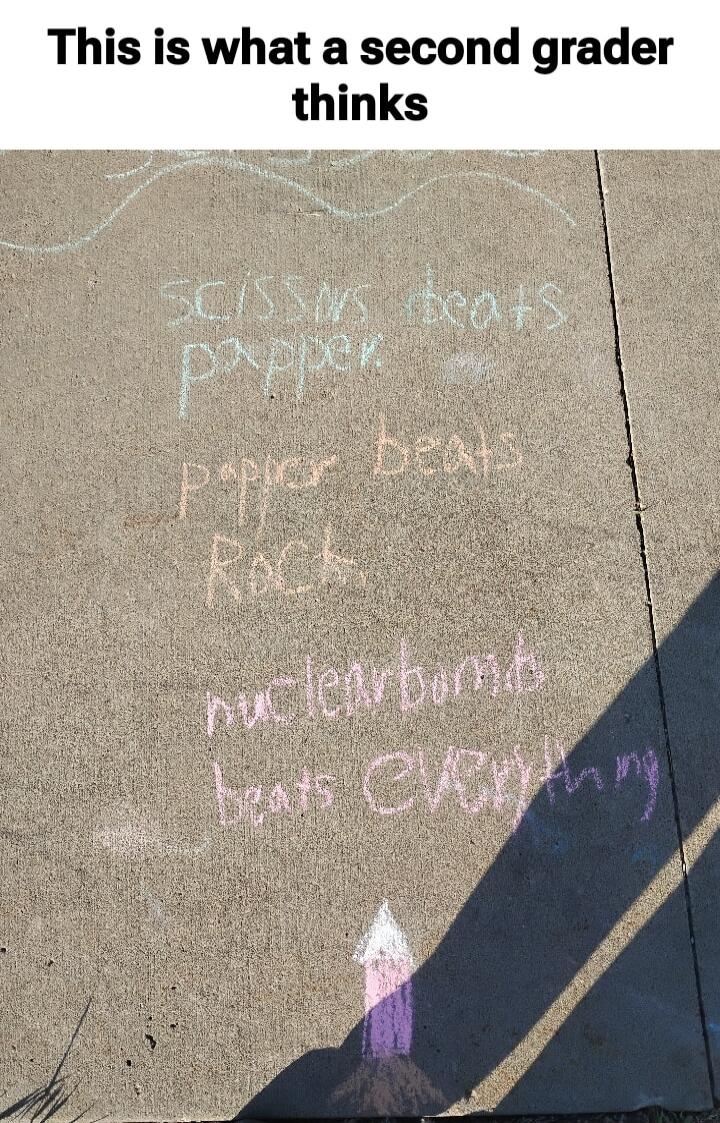 This is what a second grader
thinks
scissors beats
papper.
papper beats
Rock.
nuclearbomb
beats everything